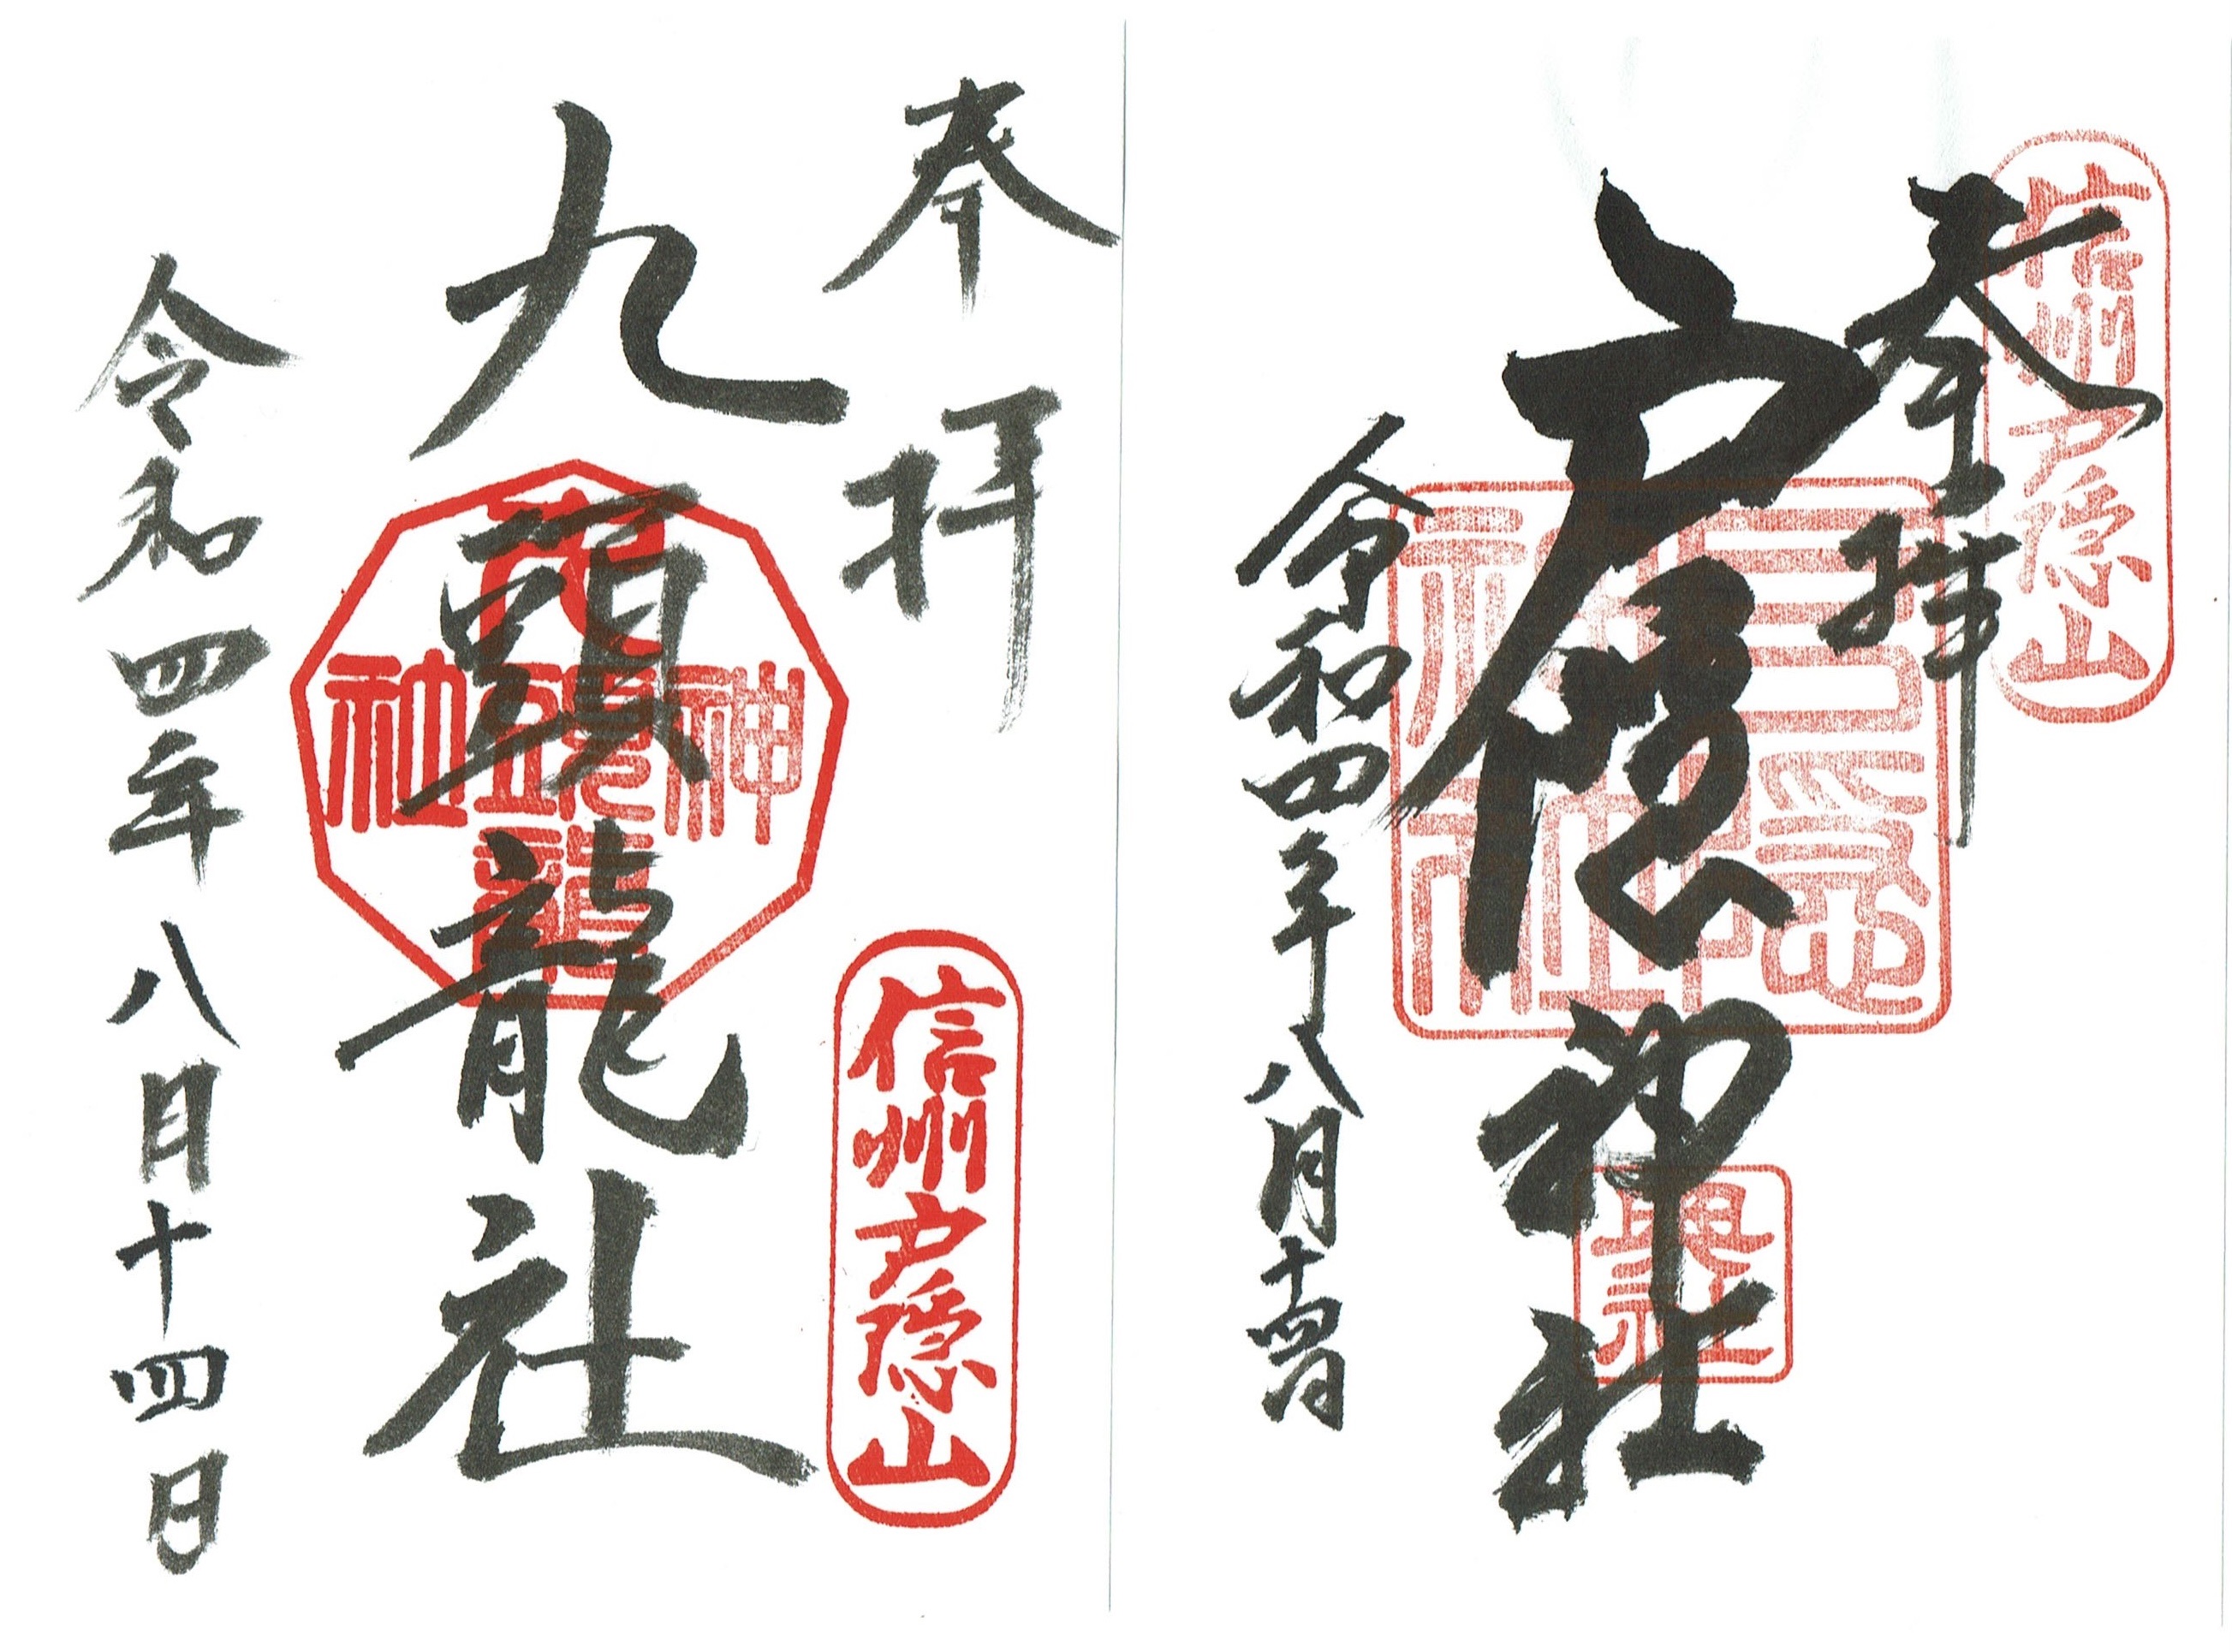 信州戸隠山
奉拝
戸隠神社
令和四年八月十四日
奉拝
信州戸隠山
九頭龍社
令和四年八月十四日